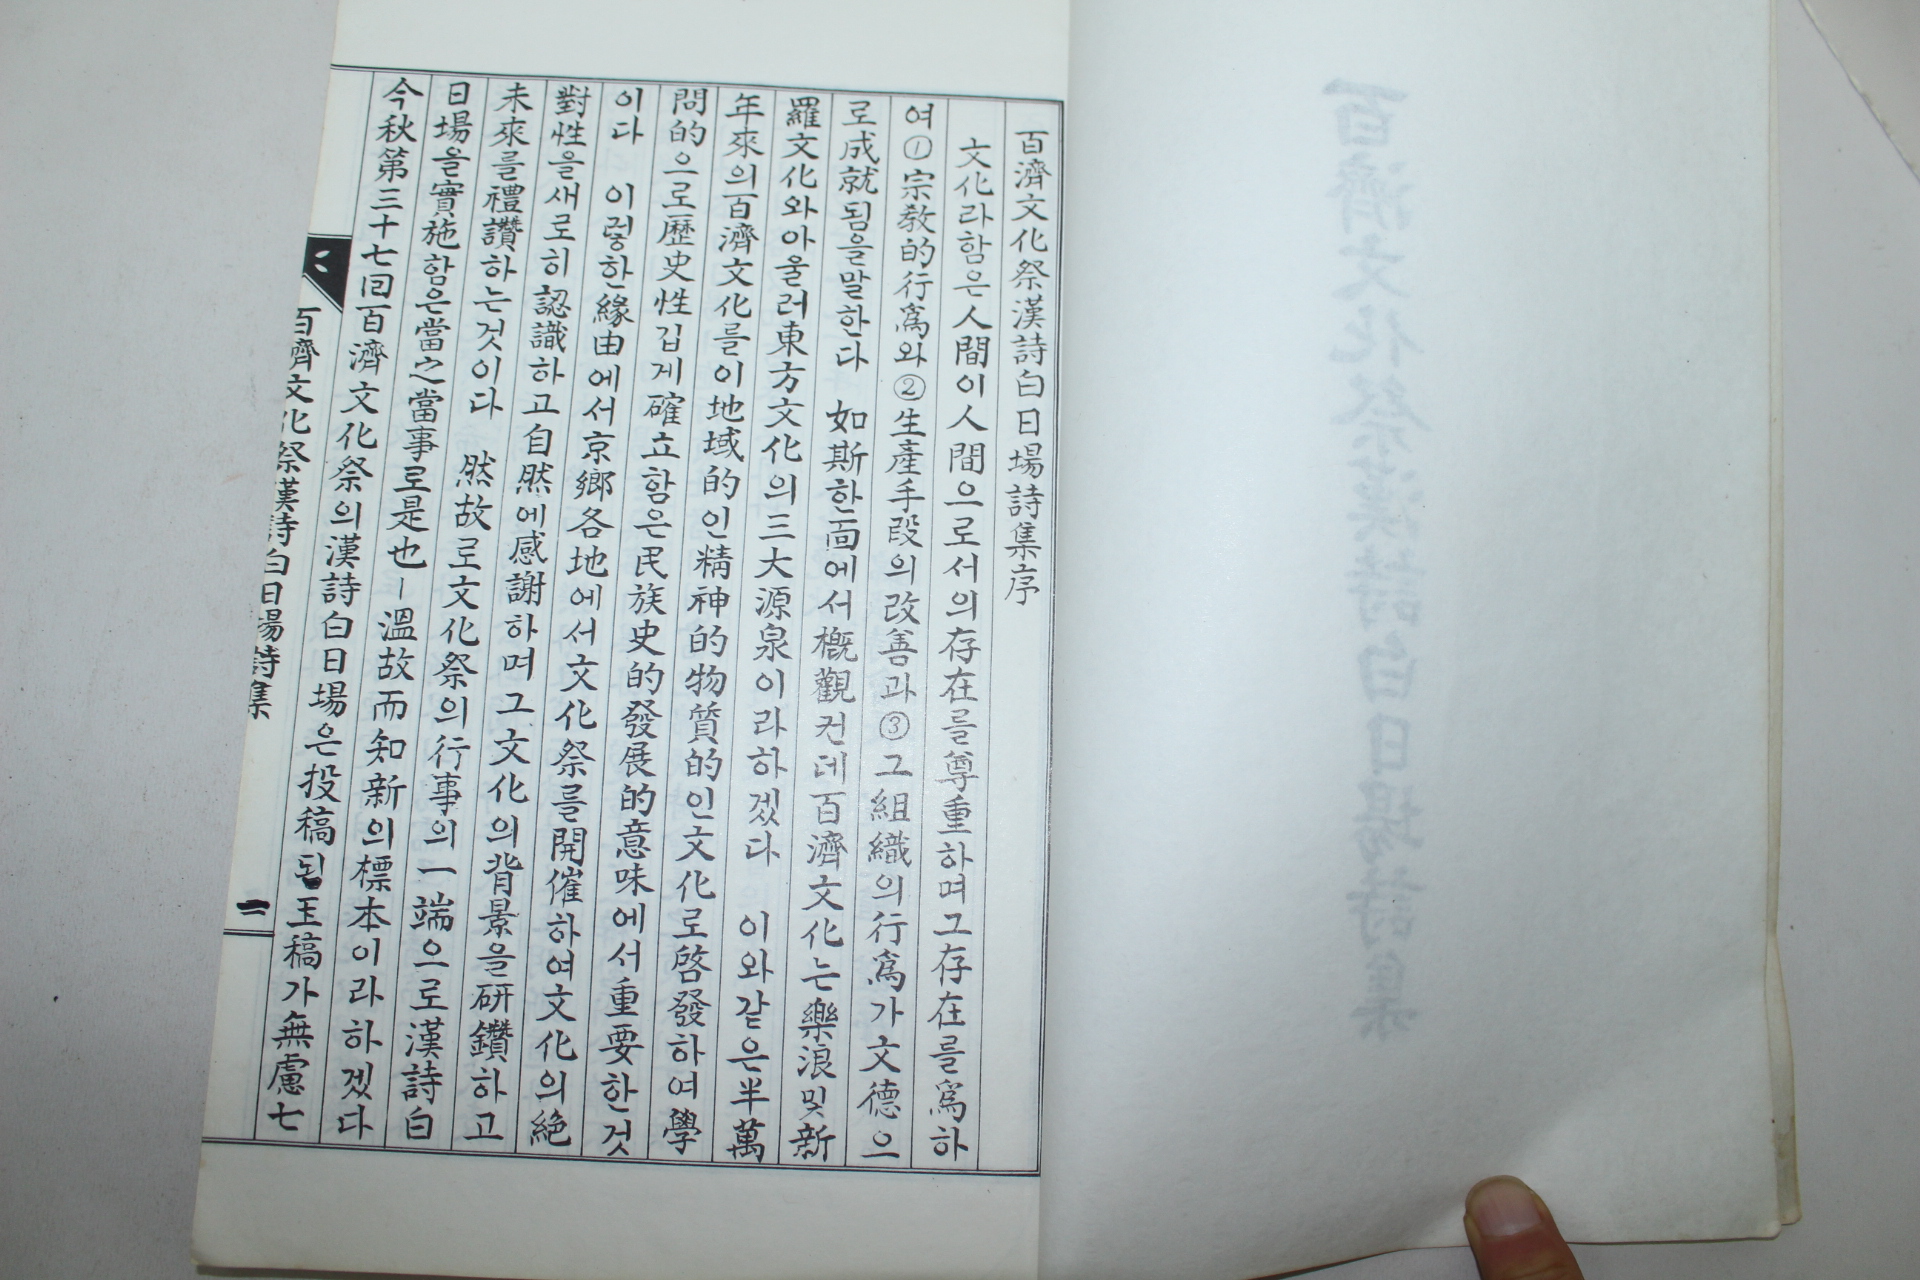 百濟文化祭漢詩白日場詩集
百濟文化祭漢詩白日場詩集序
文化라함은人間이人間으로서의存在를尊重하며그存在를爲하
여①宗敎的行爲와②生産手段의改善과③그組織의行爲가文德으
로成就됨을말한다 如斯한面에서槪觀컨데百濟文化는樂浪및新
羅文化와아울러東方文化의三大源泉이라하겠다 이와같은半萬
年來의百濟文化를이地域的인精神的物質的인文化로啓發하여學
問的으로歷史性깁게確立함은民族史的發展的意味에서重要한것
이다 이렇한緣由에서京鄕各地에서文化祭를開催하여文化의絶
對性을새로히認識하고自然에感謝하며그文化의背景을硏鑽하고
未來를禮讚하는것이다 然故로文化祭의行事의一端으로漢詩白
日場을實施함은當之當事로是也－溫故而知新의標本이라하겠다
今秋第三十七回百濟文化祭의漢詩白日場은投稿된玉稿가無慮七
百濟文化祭漢詩白日場詩集